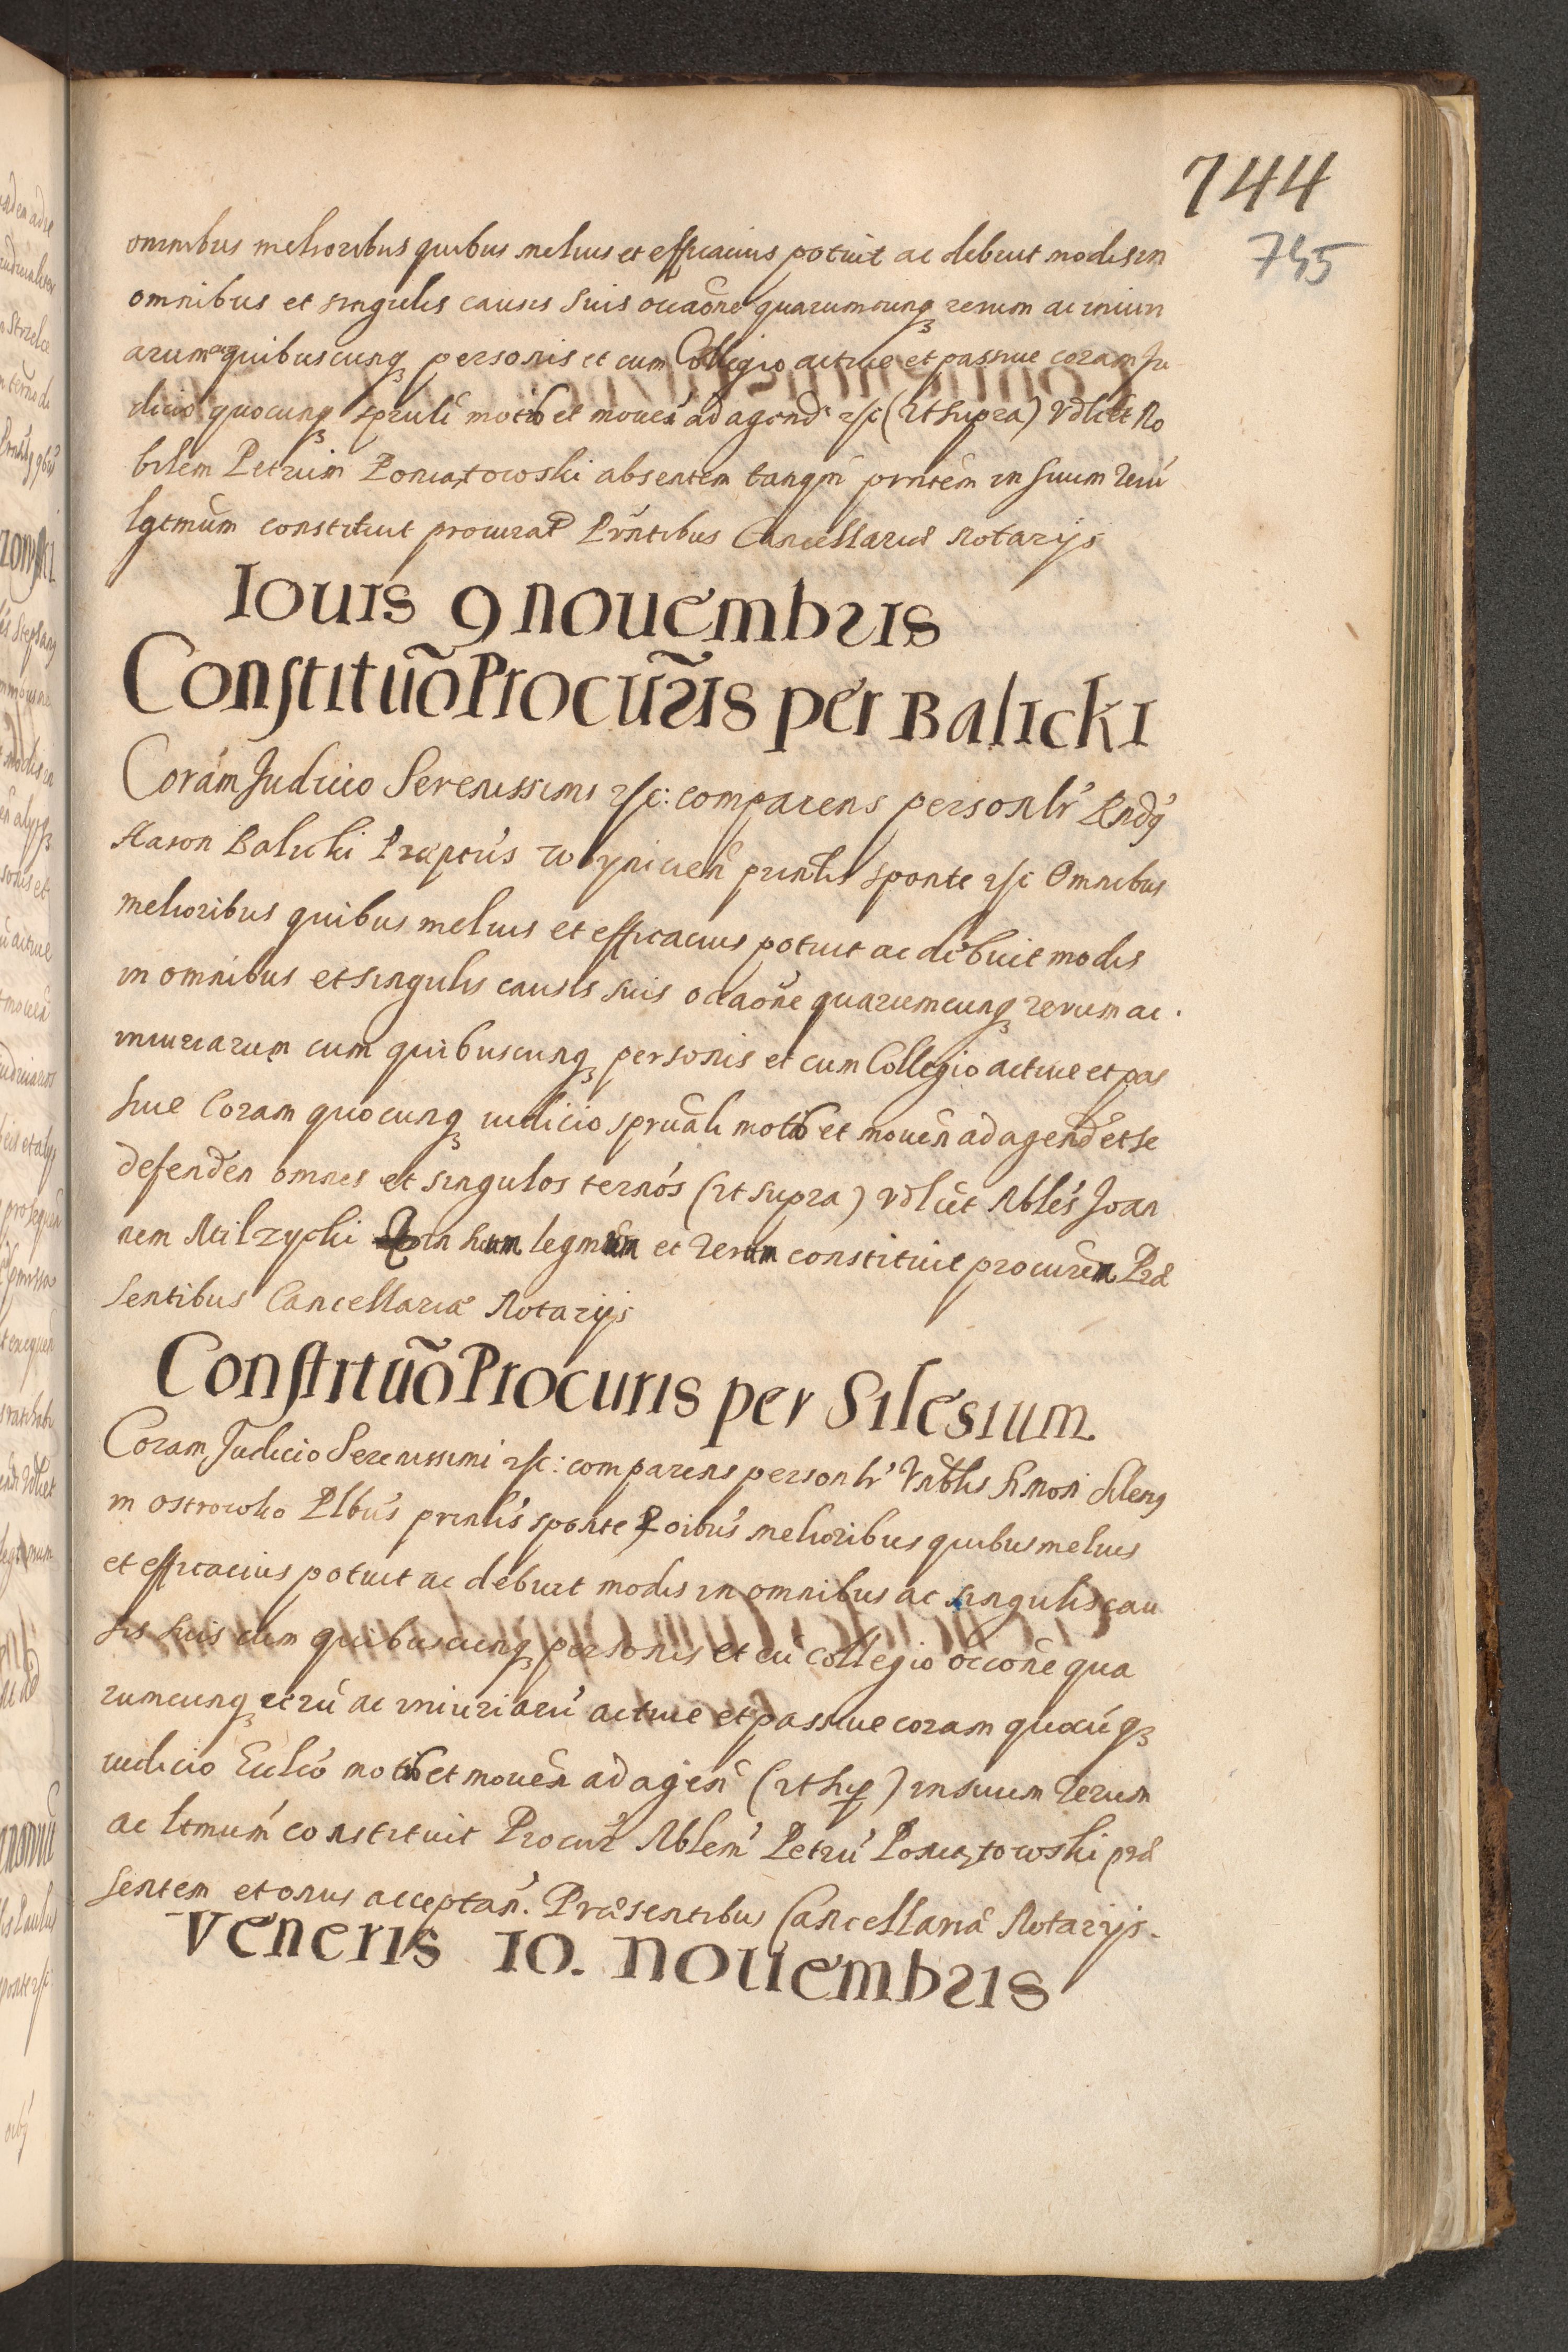 744
745
omnibus melioribus quibus melius et efficacius potuit ac debuit modis in
omnibus et singulis causis suis occaõne quarumcunq rerum ac iniuri
arum quibuscunq personis et cum Collegio actiue et passiue coram Ju
dicio quocunq sprũli et mouen̄ ad agend (Vt supra) Vdlict No
bilem Petrum Poniatowski absentem tanqm̄ prntem in suum verū
lgtmum constituit procurat Prn̄tibus Cancellariæ Notarijs
Iouis 9 nouembris
Constituõ Procuris per Balicki
Coram Judicio Serenissimi comparens personlr Rndq
Aaron Balicki Præptus prnlis sponte Omnibus
melioribus quibus melius et efficacius potuit ac debuit modis
in omnibus et singulis causis suis occaõne quarumcunq rerum ac
iniuriarum cum quibuscunq personis et cum Collegio actiue et pas
siue Coram quocunq iudicio sprũali et mouen̄ ad agend et se
defenden omnes et singulos ternos (Vt supra) Vdlict Nbles Joan
nem Milzycki in suum legmum et verum constituit procuren Præ
sentibus Cancellariæ Notarijs
Constituõ Procuris per Silesium
Coram Judicio Serenissimi comparens personlr Simon Sileng
in ostrowko Plbus prnlis sponte oibus melioribus quibus melius
et efficacius potuit ac debuit modis in omnibus ac singulis cau
sis suis cum quibuscunq personis et cū collegio occõne qua
rumcunq rerū ac iniuriarū actiue et passiue coram quocūq
iudicio et mouen ad agen (vt sup) in suum Verum
ac ltmum constituit Procur Nblem Petrū Poniatowski præ
sentem et onus acceptan. Præsentibus Cancellariæ Notarijs.
Veneris 10. nouembris